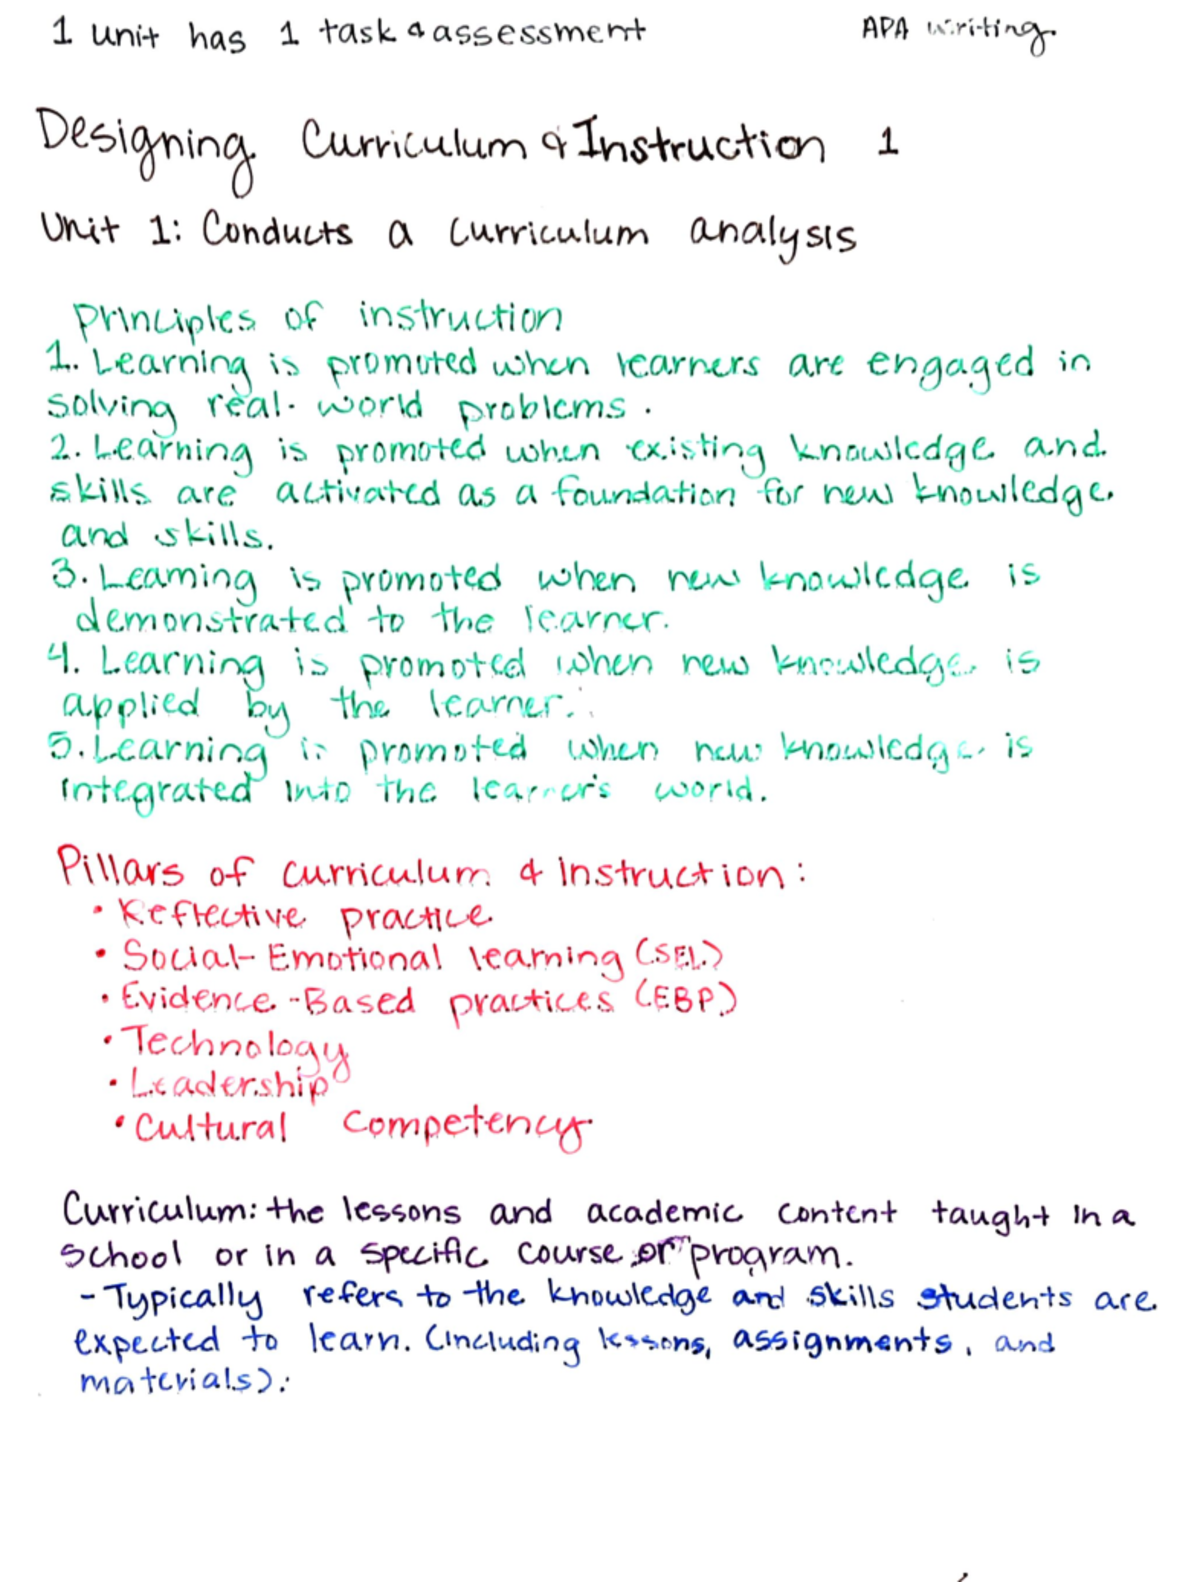 1 unit has 1 task & assessment
APA writing
Designing Curriculum & Instruction 1
Unit 1: Conducts a curriculum analysis
Principles of instruction
1. Learning is promoted when learners are engaged in
solving real-world problems.
2. Learning is promoted when existing knowledge and
skills are activated as a foundation for new knowledge
and skills.
3. Learning is promoted when new knowledge is
demonstrated to the learner.
4. Learning is promoted when new knowledge is
applied by the learner.
5. Learning is promoted when new knowledge is
integrated into the learner's world.
Pillars of curriculum & instruction:
• Reflective practice
• Social-Emotional learning (SEL)
• Evidence-Based practices (EBP)
• Technology
• Leadership
• Cultural Competency
Curriculum: the lessons and academic content taught in a
school or in a specific course or program.
- Typically refers to the knowledge and skills students are
expected to learn. (including lessons, assignments, and
materials).